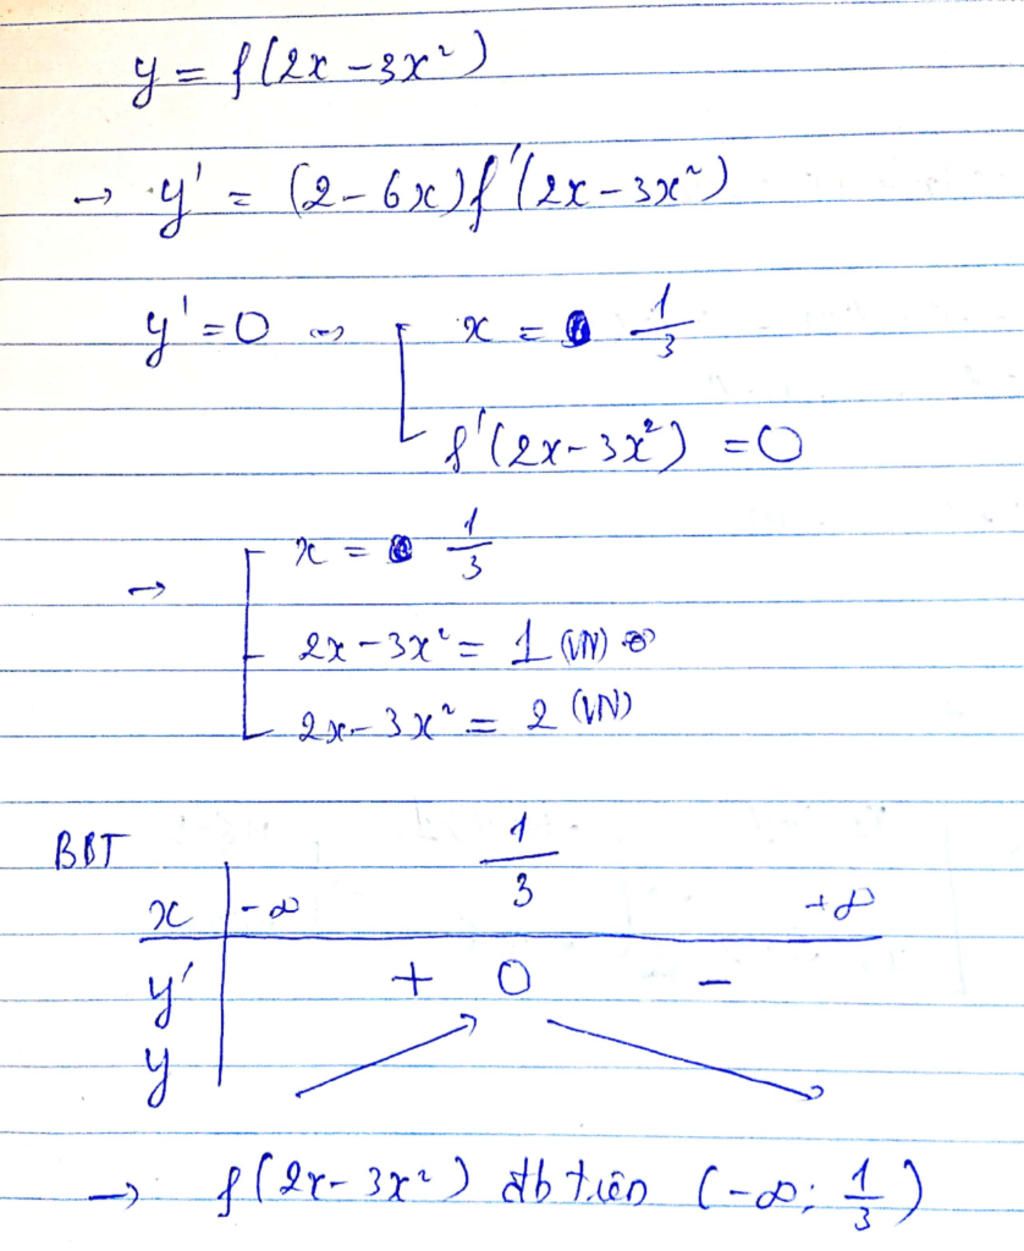 y = f(2x - 3x²)
→ y' = (2 - 6x) f'(2x - 3x²)
y' = 0 ⇔ [ x = 1/3
f'(2x - 3x²) = 0
→ [ x = 1/3
2x - 3x² = 1 (VN)
2x - 3x² = 2 (VN)
BBT
x | -∞ 1/3 +∞
y' + 0 -
y ↗ ↘
→ f(2x - 3x²) đb trên (-∞; 1/3)